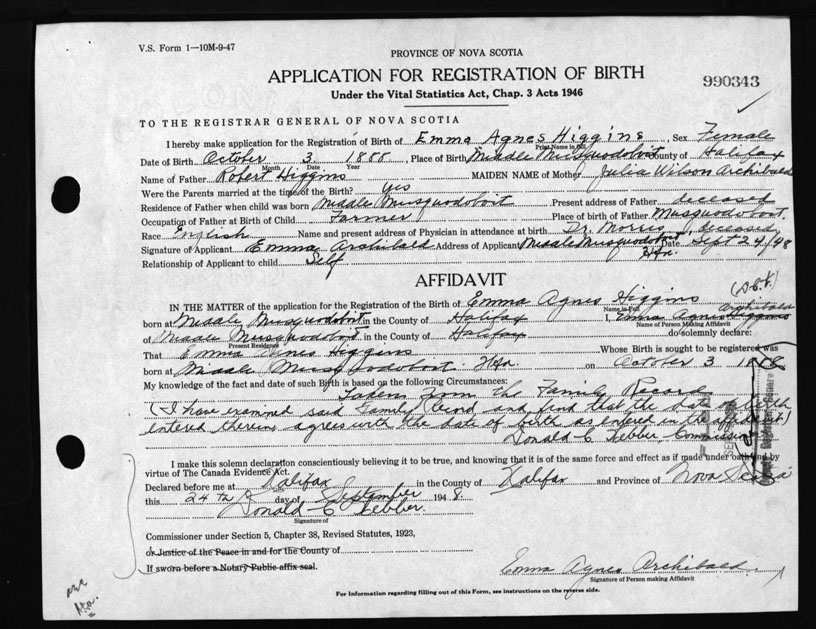 V.S. Form 1—10M-9-47
PROVINCE OF NOVA SCOTIA
APPLICATION FOR REGISTRATION OF BIRTH
990343
Under the Vital Statistics Act, Chap. 3 Acts 1946
TO THE REGISTRAR GENERAL OF NOVA SCOTIA
I hereby make application for the Registration of Birth of Emma Agnes Higgins, Sex Female
Print Name in Full
Date of Birth October 3 Place of Birth Middle Musquodoboit County of Halifax
Month Date Year
Name of Father Robert Higgins MAIDEN NAME of Mother Julia Wilson Archibald
Were the Parents married at the time of the Birth? Yes
Residence of Father when child was born Middle Musquodoboit Present address of Father deceased
Occupation of Father at Birth of Child Farmer Place of birth of Father Musquodoboit.
Race English Name and present address of Physician in attendance at birth Dr. Morris, deceased
Signature of Applicant Emma Archibald Address of Applicant Middle Musquodoboit, Date Sept 24/48
Hfx.
Relationship of Applicant to child Self
AFFIDAVIT
IN THE MATTER of the application for the Registration of the Birth of Emma Agnes Higgins
Name in Full
Archibald
born at Middle Musquodoboit in the County of Halifax I, Emma Agnes Higgins
Name of Person Making Affidavit
of Middle Musquodoboit in the County of Halifax do solemnly declare:
Present Residence
That Emma Agnes Higgins Whose Birth is sought to be registered was
born at Middle Musquodoboit Hfx. on October 3
My knowledge of the fact and date of such Birth is based on the following Circumstances:
Taken from the Family Record
(I have examined said Family Record and find that the date of birth
entered therein agrees with the date of birth as entered in the affidavit)
Donald C. Tebber Commissioner
I make this solemn declaration conscientiously believing it to be true, and knowing that it is of the same force and effect as if made under oath and by
virtue of The Canada Evidence Act.
Declared before me at Halifax in the County of Halifax and Province of Nova Scotia
this 24th day of September 1948.
Donald C Tebber.
Signature of
Commissioner under Section 5, Chapter 38, Revised Statutes, 1923,
or Justice of the Peace in and for the County of
If sworn before a Notary Public affix seal.
Emma Agnes Archibald
Signature of Person making Affidavit
For Information regarding filling out of this Form, see instructions on the reverse side.